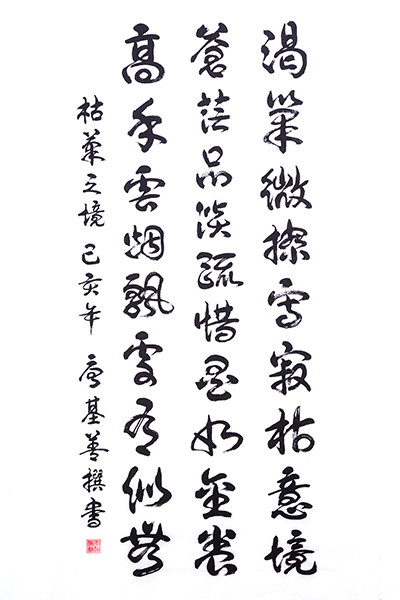 渴筆微擦写寂枯意境
蒼茫品淡疏惜墨如金
高手雲烟飄處有似無
枯筆之境 己亥年 唐基善撰書